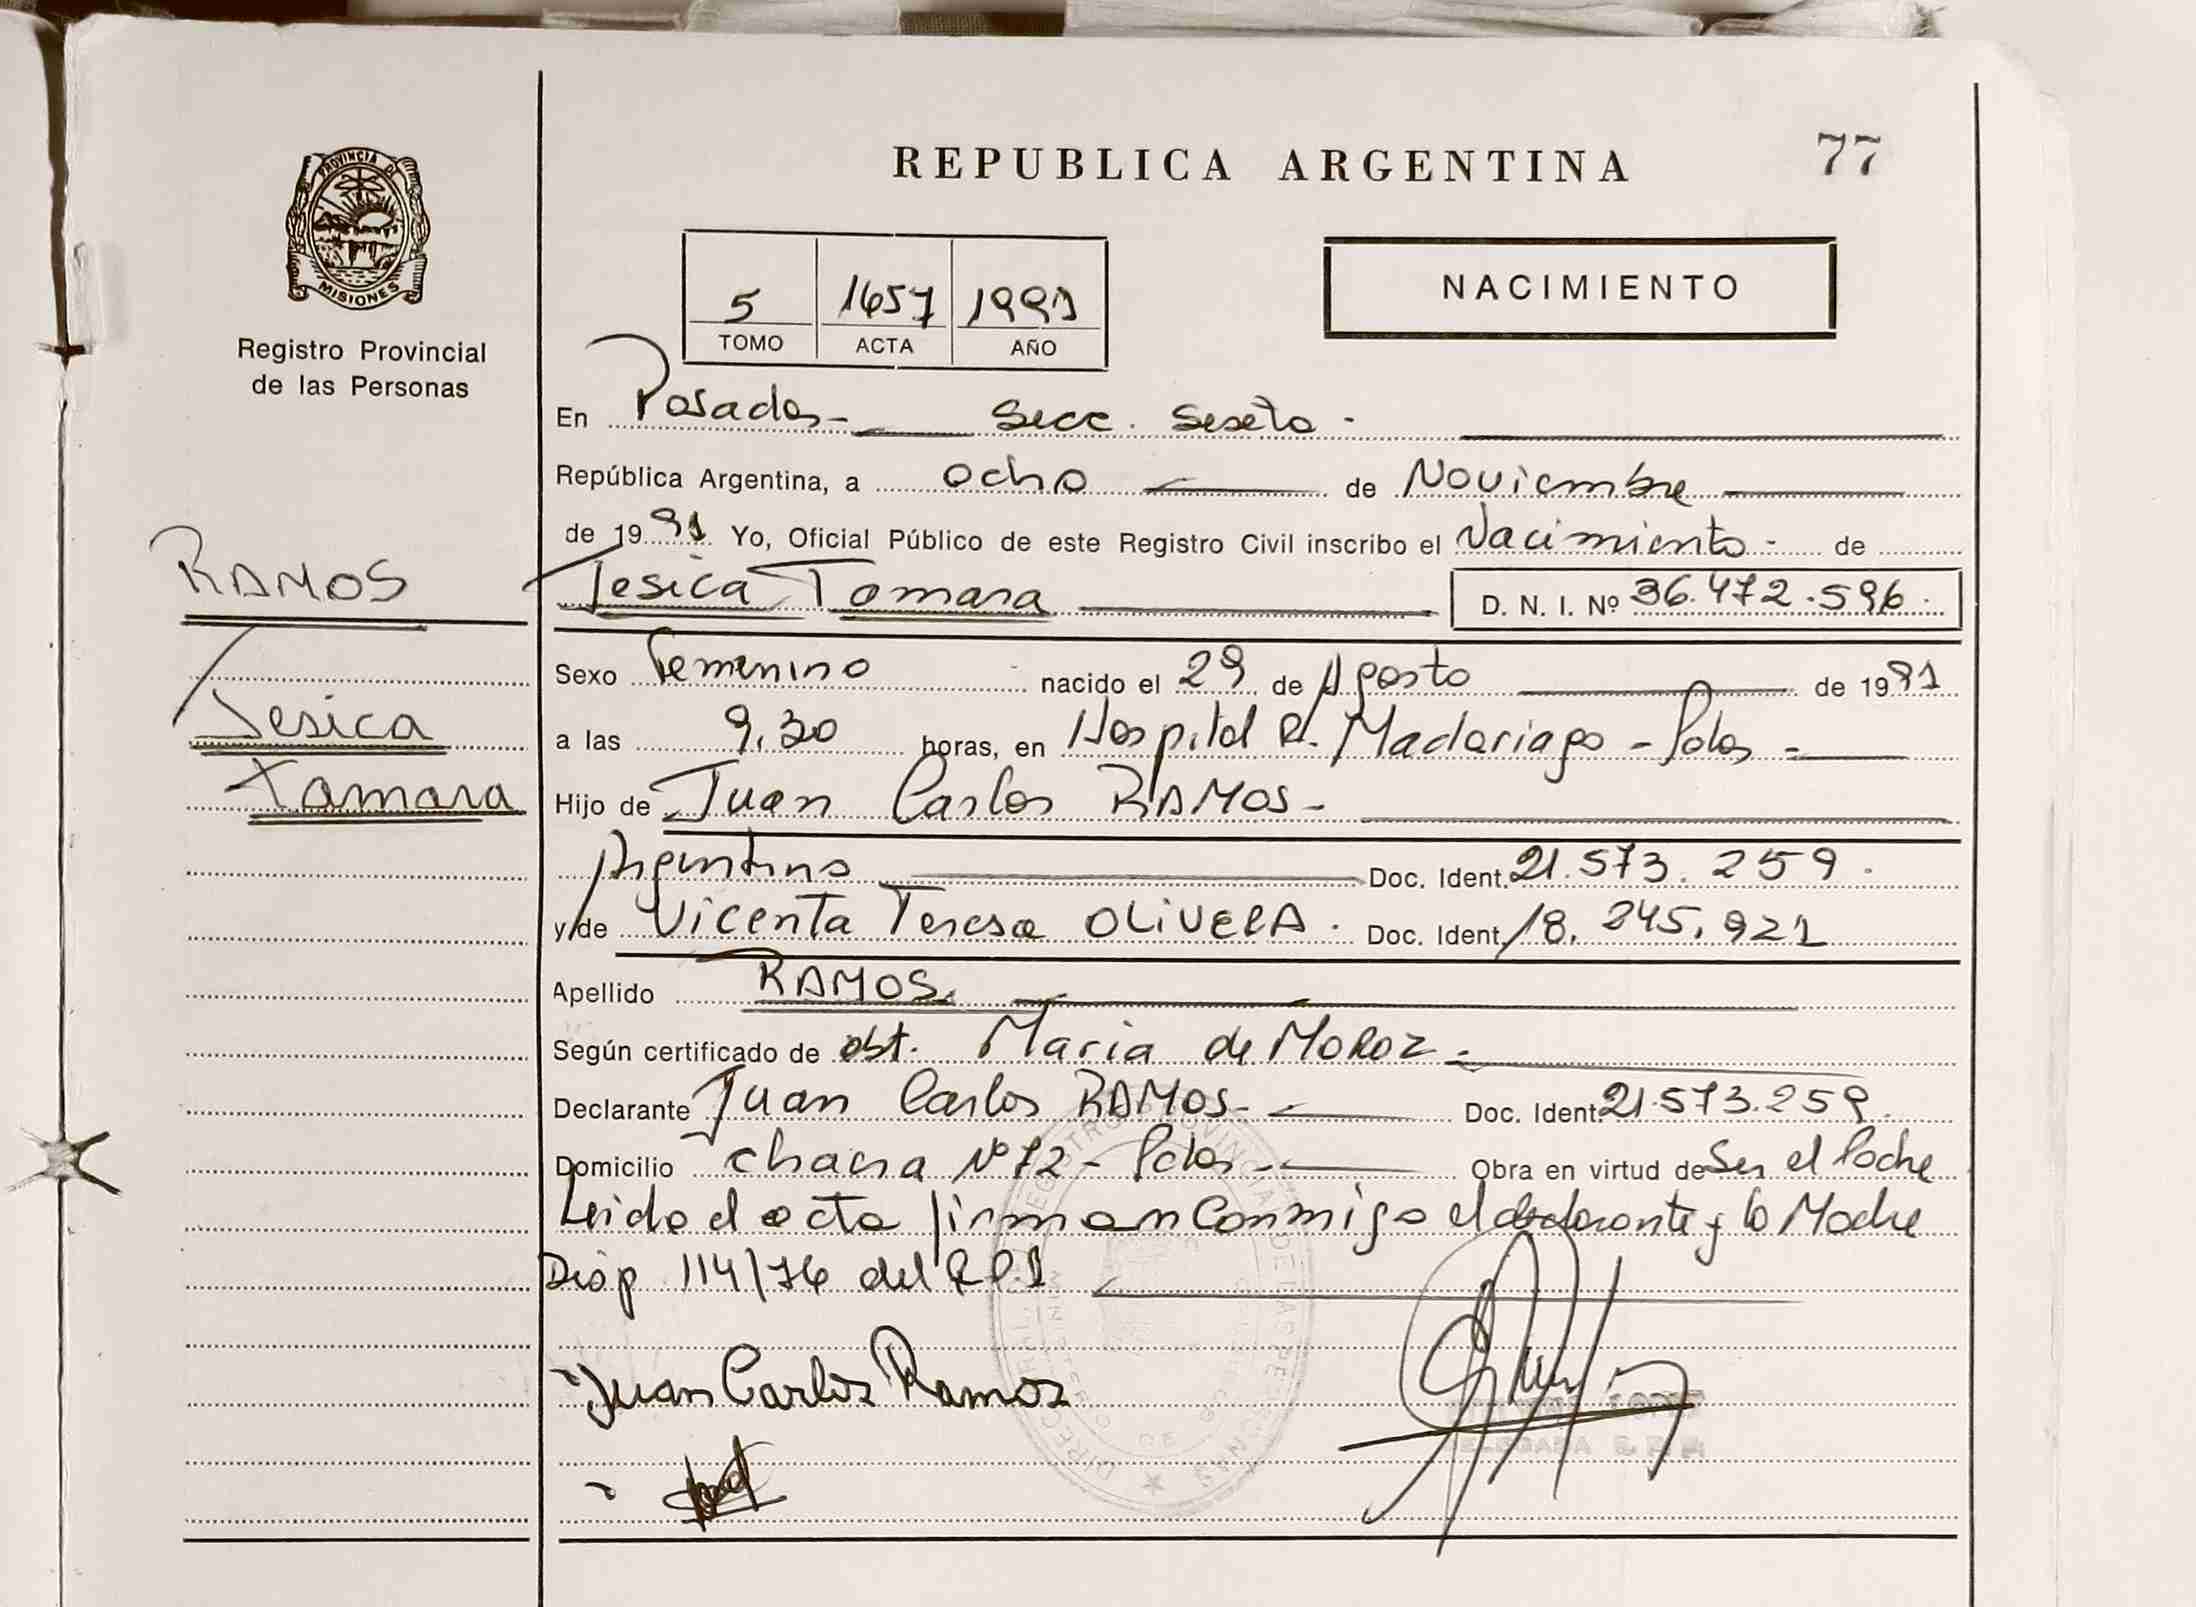 REPUBLICA ARGENTINA
77
PROVINCIA DE
MISIONES
Registro Provincial
de las Personas
5 1657 1991
TOMO ACTA AÑO
NACIMIENTO
En Posadas - Secc. Sexta -
República Argentina, a ocho de Noviembre
de 1991 Yo, Oficial Público de este Registro Civil inscribo el Nacimiento - de
Jesica Tamara D. N. I. Nº 36.472.596.
RAMOS
Jesica
Tamara
Sexo Femenino nacido el 29 de Agosto de 1991
a las 9,30 horas, en Hospital R. Madariaga - Pdas -
Hijo de Juan Carlos RAMOS -
Argentino Doc. Ident. 21.573.259.
y de Vicenta Teresa OLIVERA. Doc. Ident. 18.245.921
Apellido RAMOS.
Según certificado de obt. Maria de MOROZ -
Declarante Juan Carlos RAMOS - Doc. Ident. 21.573.259.
Domicilio chacra Nº 72 - Pdas - Obra en virtud de Ser el Padre
Leido el acta firman conmigo el declarante y la Madre
Disp 114/76 del R.P.
Juan Carlos Ramos